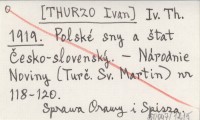 [THURZO Ivan] Iv. Th.
1919. Polské sny a štat
Česko-slovenský. – Národnie
Noviny (Turč. Sv. Martin) nr
118-120.
Sprawa Orawy i Spisza.